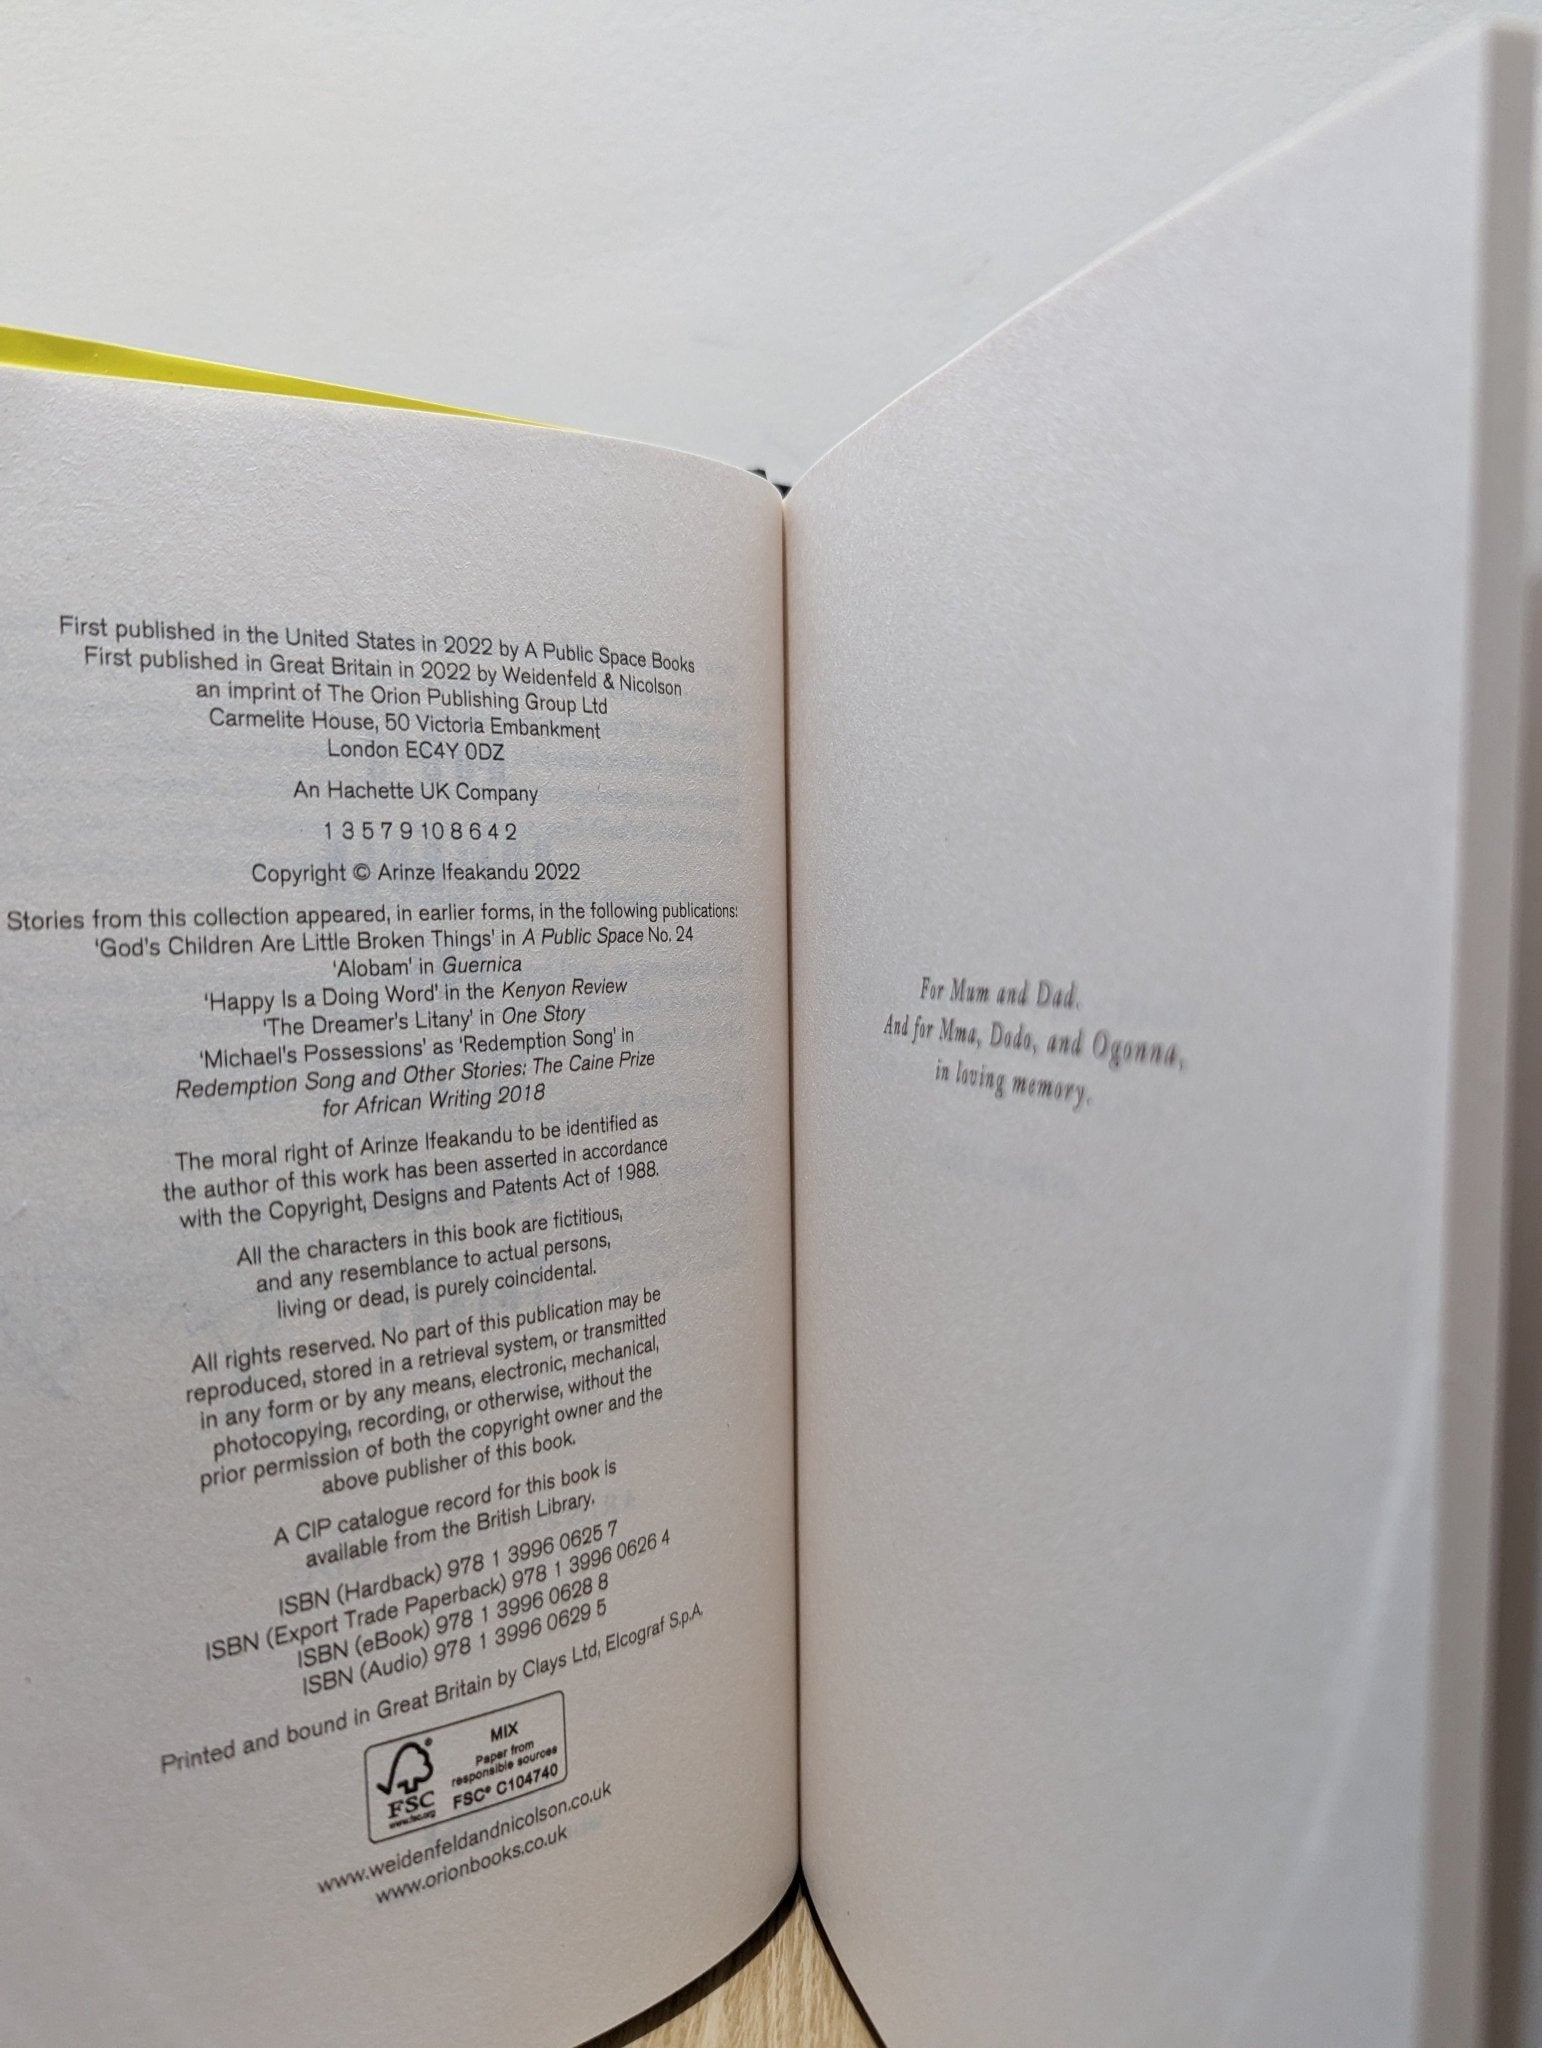 First published in the United States in 2022 by A Public Space Books
First published in Great Britain in 2022 by Weidenfeld & Nicolson
an imprint of The Orion Publishing Group Ltd
Carmelite House, 50 Victoria Embankment
London EC4Y 0DZ
An Hachette UK Company
1 3 5 7 9 10 8 6 4 2
Copyright © Arinze Ifeakandu 2022
Stories from this collection appeared, in earlier forms, in the following publications:
'God's Children Are Little Broken Things' in A Public Space No. 24
'Alobam' in Guernica
'Happy Is a Doing Word' in the Kenyon Review
'The Dreamer's Litany' in One Story
'Michael's Possessions' as 'Redemption Song' in
Redemption Song and Other Stories: The Caine Prize
for African Writing 2018
The moral right of Arinze Ifeakandu to be identified as
the author of this work has been asserted in accordance
with the Copyright, Designs and Patents Act of 1988.
All the characters in this book are fictitious,
and any resemblance to actual persons,
living or dead, is purely coincidental.
All rights reserved. No part of this publication may be
reproduced, stored in a retrieval system, or transmitted
in any form or by any means, electronic, mechanical,
photocopying, recording, or otherwise, without the
prior permission of both the copyright owner and the
above publisher of this book.
A CIP catalogue record for this book is
available from the British Library.
ISBN (Hardback) 978 1 3996 0625 7
ISBN (Export Trade Paperback) 978 1 3996 0626 4
ISBN (eBook) 978 1 3996 0628 8
ISBN (Audio) 978 1 3996 0629 5
Printed and bound in Great Britain by Clays Ltd, Elcograf S.p.A.
MIX
Paper from
responsible sources
FSC® C104740
FSC
www.fsc.org
www.weidenfeldandnicolson.co.uk
www.orionbooks.co.uk
For Mum and Dad.
And for Mma, Dodo, and Ogonna,
in loving memory.